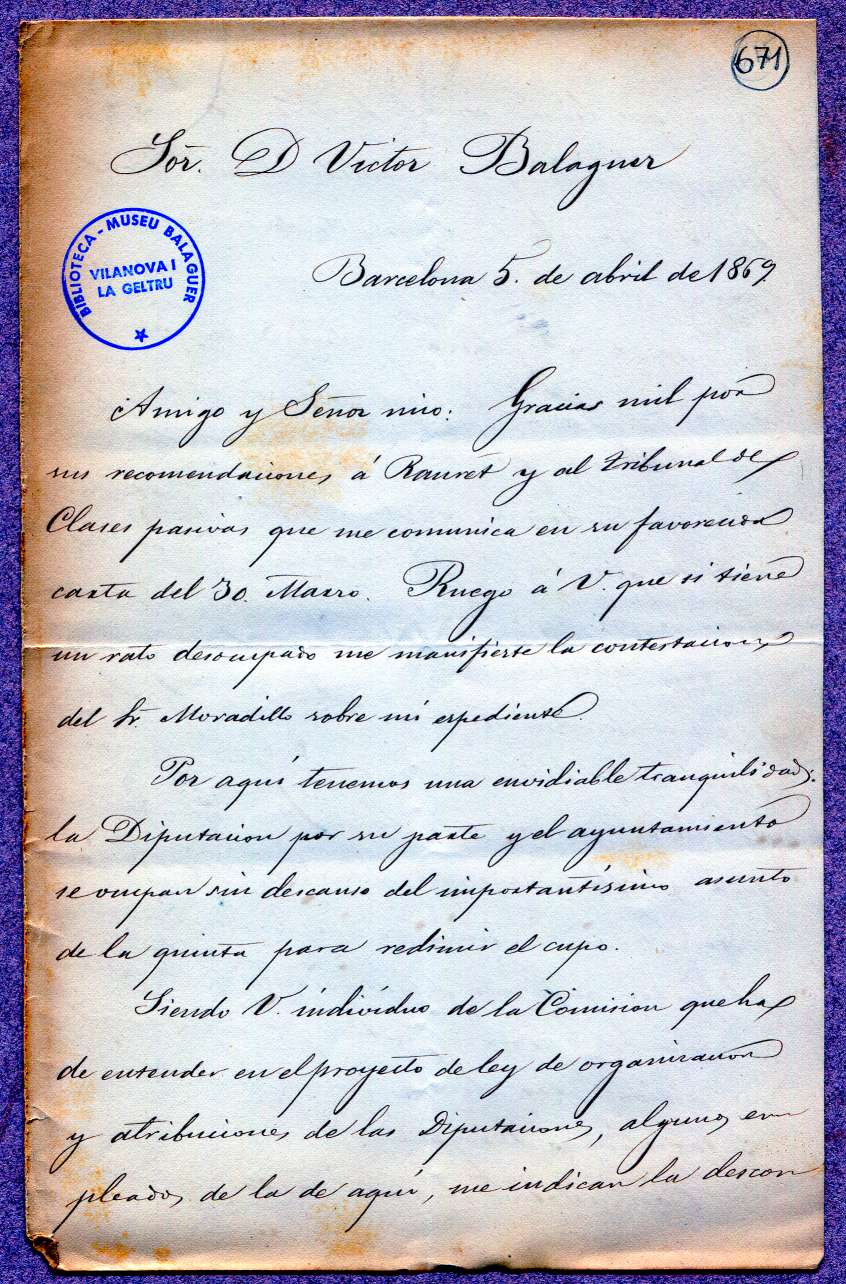 671
Sor. D Victor Balaguer
BIBLIOTECA - MUSEU BALAGUER
VILANOVA I
LA GELTRU
Barcelona 5. de abril de 1869.
Amigo y Señor mio: Gracias mil por
sus recomendaciones á Rauret y al tribunal de
Clases pasivas que me comunica en su favorecida
carta del 30. Marzo. Ruego á V. que si tiene
un rato desocupado me manifieste la contestacion
del Sr. Moradillo sobre mi espediente.
Por aquí tenemos una envidiable tranquilidad;
la Diputacion por su parte y el ayuntamiento
se ocupan sin descanso del importantísimo asunto
de la quinta para redimir el cupo.
Siendo V. individuo de la Comision que ha
de entender en el proyecto de ley de organizacion
y atribuciones de las Diputaciones, algunos em
pleados de la de aquí, me indican la descon